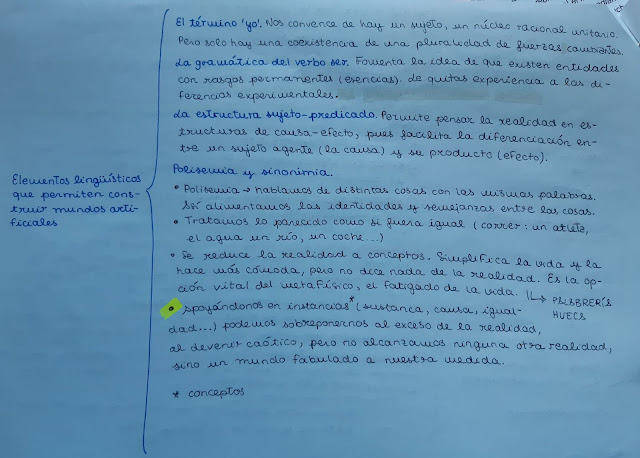 El término 'yo'. Nos convence de hay un sujeto, un núcleo racional unitario.
Pero solo hay una coexistencia de una pluralidad de fuerzas cambiantes.
La gramática del verbo ser. Fomenta la idea de que existen entidades
con rasgos permanentes (esencias). Le quitas experiencia a las di-
ferencias experimentales.
La estructura sujeto-predicado. Permite pensar la realidad en es-
tructuras de causa-efecto, pues facilita la diferenciación en-
tre un sujeto agente (la causa) y su producto (efecto).
Elementos lingüísticos
que permiten cons-
truir mundos arti-
ficiales
Polisemia y sinonimia.
• Polisemia → hablamos de distintas cosas con las mismas palabras.
Así alimentamos las identidades y semejanzas entre las cosas.
• Tratamos lo parecido como si fuera igual (correr: un atleta,
el agua un río, un coche...)
• Se reduce la realidad a conceptos. Simplifica la vida y la
hace más cómoda, pero no dice nada de la realidad. Es la op-
ción vital del metafísico, el fatigado de la vida. ↳ PALABRERÍA
HUECA
• Apoyándonos en instancias* (sustancia, causa, igual-
dad...) podemos sobreponernos al exceso de la realidad,
al devenir caótico, pero no alcanzamos ninguna otra realidad,
sino un mundo fabulado a nuestra medida.
* conceptos